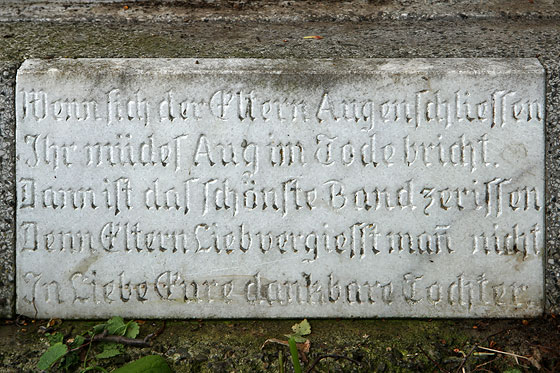 Wenn sich der Eltern Augen schliessen
Ihr müdes Aug im Tode bricht.
Dann ist das schönste Band zerissen
Denn Eltern Lieb vergiesst man̄ nicht
In Liebe Eure dankbare Tochter.